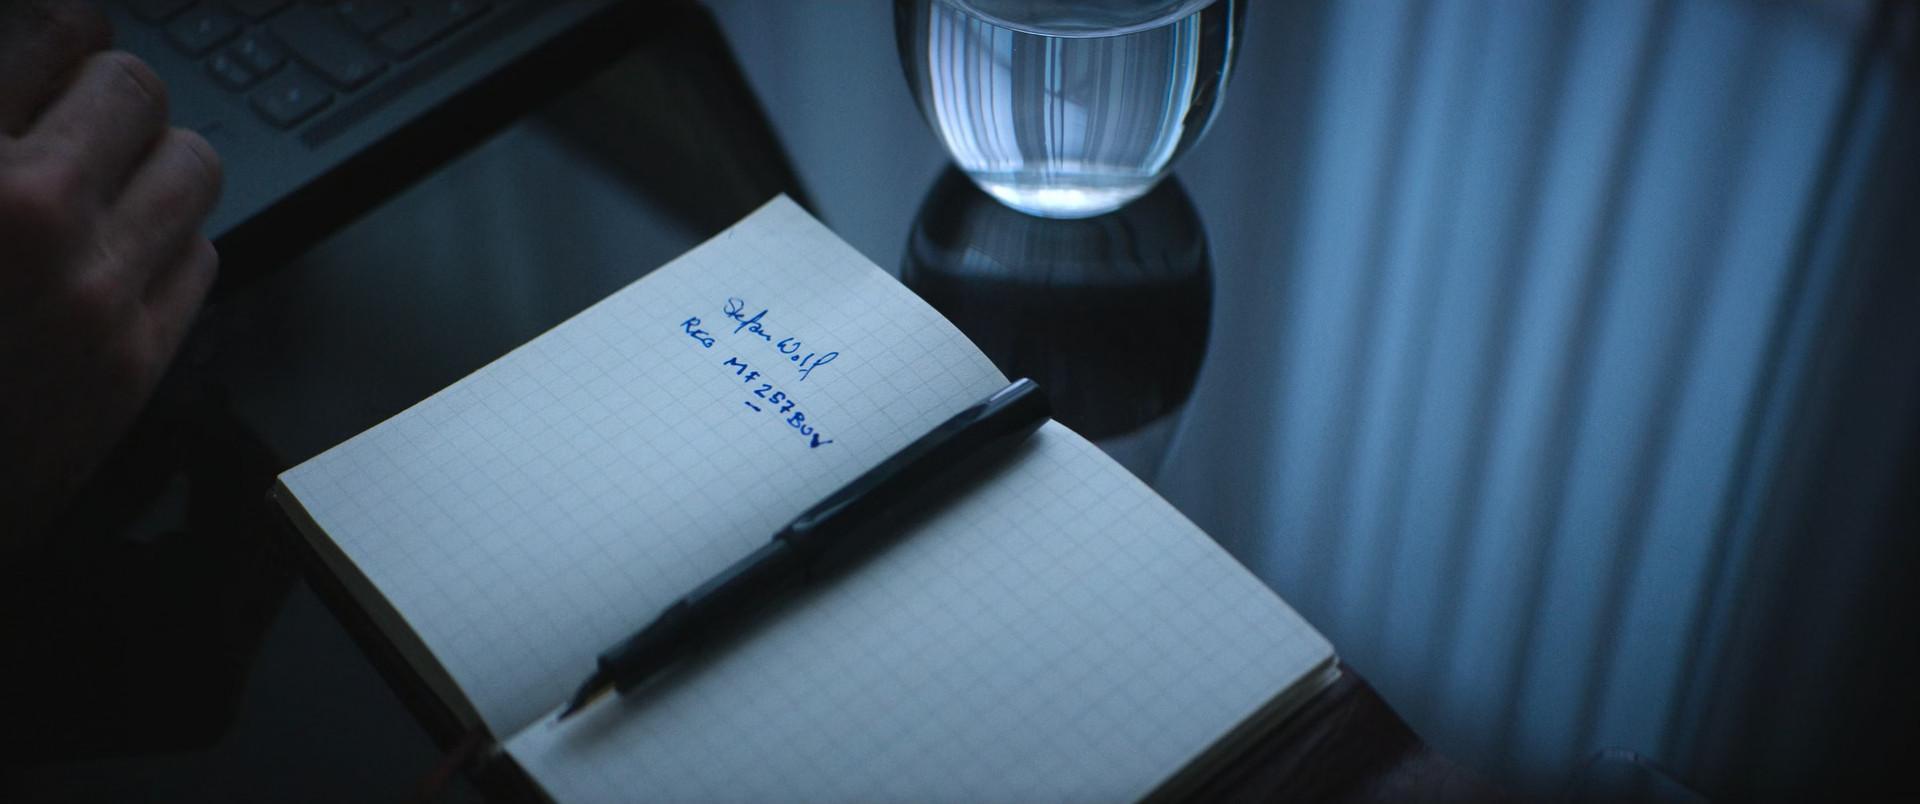 Stefan Wolf
REG MF257BUV